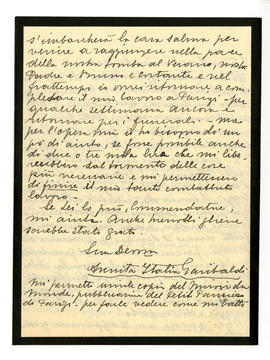 s'imbarcherà la cara salma per
venire a raggiungere nella pace
della nostra tomba al Verano, nostro
Padre e Bruno e Costante e nel
frattempo io vorrei ritornare a com-
pletare il mio lavoro a Parigi - per
qualche settimana, ancora e
ritornare per i funerali - ma
per l'opera mia ci ho bisogno di un
pò di aiuto, se fosse possibile anche
di due o tre mila lire che mi libe-
rerebbero dal tormento delle cose
più necessarie e mi permettessero
di finire il mio tanto combattuto
lavoro.
Se Lei lo può, Commendatore,
mi aiuti. Anche Menotti gliene
sarebbe stato grato.
Sua Devma
Annita Italia Garibaldi
Mi permetto unirle copia del
Monde, pubblicazione del
di Parigi. per farle vedere come mi